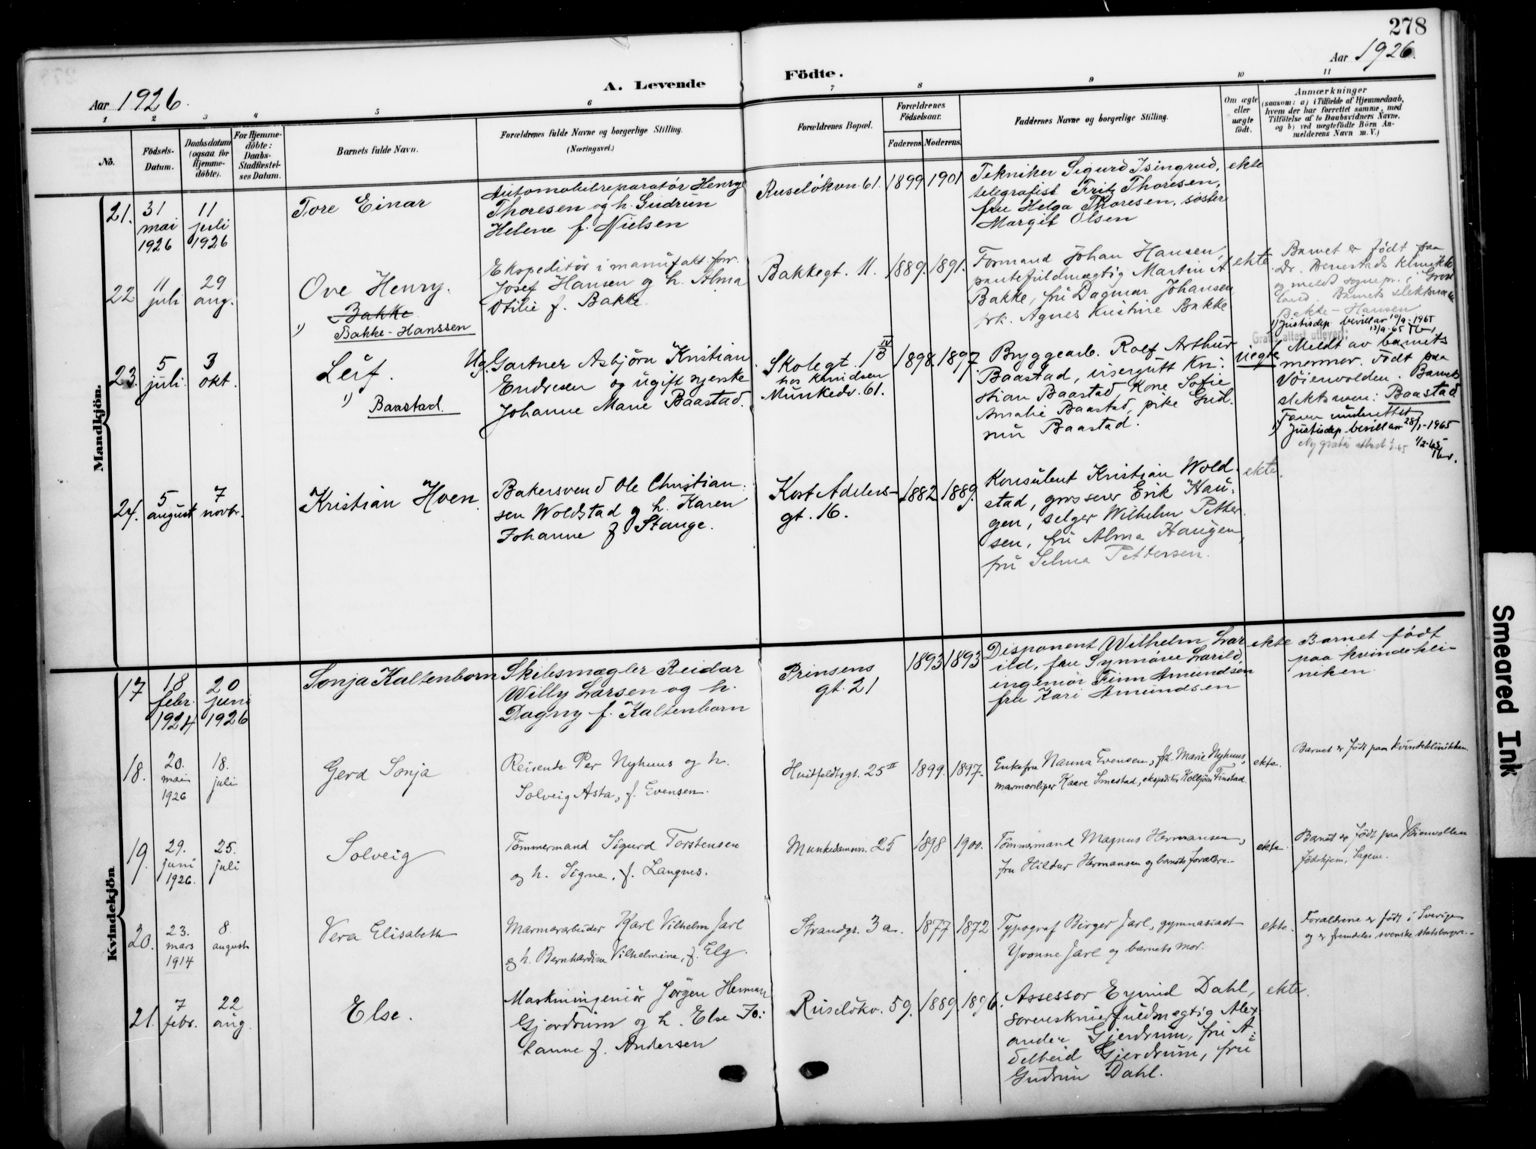 278
Aar 1926.
A. Levende Födte.
Aar 1926.
1 2 3 4 5 6 7 8 9 10 11
No.
Födsels-
Datum.
Daabsdatum
(ogsaa for
Hjemme-
döbte).
For Hjemme-
döbte:
Daabs-
Stadfæstel-
ses Datum.
Barnets fulde Navn.
Forældrenes fulde Navne og borgerlige Stilling.
(Næringsvei.)
Forældrenes Bopæl.
Forældrenes
Födselsaar.
Faderens. Moderens.
Faddernes Navne og borgerlige Stilling.
Om ægte
eller
uægte
födt.
Anmærkninger
(saasom: a) i Tilfælde af Hjemmedaab,
hvem der har forrettet samme, med
Tilföielse af to Daabsvidners Navne,
og b) ved uægtefödte Börn An-
melderens Navn m. V.)
Mandkjön.
21. 31
mai
1926
11
juli
1926
Tore Einar
Automobilreparatør Henry
Thoresen og h. Gudrun
Helene f. Nielsen
Ruseløkvn 61. 1899 1901
Tekniker Sigurd Isingrud,
telegrafist Fritz Thoresen,
fru Helga Thoresen, søster
Margit Olsen
ekte
22 11
juli
29
aug.
Ove Henry.
Bakke
1) Bakke-Hanssen
Ekspeditør i manufakt.forr.
Josef Hansen og h. Alma
Otilie f. Bakke.
Bakkegt. 11. 1889. 1891.
Formand Johan Hansen,
pantefuldmægtig Martin A
Bakke, fru Dagmar Johansen
frk. Agnes Kristine Bakke
ekte
Barnet er født paa
Bakke-Hansen
1) Justisdep. bevill av 10/9-1965
23. 5
juli
3
okt.
Leif.
1) Baastad.
Ug. Gartner Asbjørn Kristian
Endresen og ugift syerske
Johanne Marie Baastad.
Skolegt. 18 IV
hos Knudsen
Munkedv. 61.
1898. 1897.
Bryggearb. Rolf Arthur
Baastad, visergutt Kri-
stian Baastad, Kone Sofie
Amalie Baastad, pike Gud-
run Baastad.
uegte
Meldt av barnets
mormor. Født paa
Voienvolden. Barnets
slektsnavn: Baastad
Faren underrettet
1) Justisdep bevill av 28/1-1965
24. 5
august
7
novbr.
Kristian Hoen.
Bakersvend Ole Christian-
sen Woldstad og h. Karen
Johanne f. Stange.
Kort Adelers-
gt. 16.
1882 1889.
Konsulent Kristian Wold-
stad, grosserer Erik Hau-
gen, selger Wilhelm Petter-
sen, fru Alma Haugen,
fru Selma Pettersen.
ekte
Kvindekjön
17 18
febr.
1924
20
juni
1926
Sonja Kaltenborn
Skibsmægler Reidar
Willy Larsen og h.
Dagny f. Kaltenborn
Prinsens
gt. 21
1893 1893
Disponent Wilhelm Lar
ild, fru Synnøve Larild,
ingeniør Finn Amundsen
fru Kari Amundsen
ekte
Barnet født
paa kvindekli-
niken
18. 20.
mai
1926
18.
juli
Gerd Sonja
Reisende Per Nyhuus og h.
Solveig Asta, f. Evensen.
Huitfeldtsgt. 25 II 1899. 1897.
Enkefru Nanna Evensen, frk. Marie Nyhuus,
marmorsliper Kaare Smestad, ekspeditør Kolbjørn Finstad
ekte.
Barnet er født paa Kvindeklinikken
19. 29.
juni
1926.
25.
juli
Solveig
Tømmermand Sigurd Torstensen
og h. Signe, f. Langnes.
Munkedamsvn. 25 1898 1900.
Tømmermand Magnus Hermansen,
fru Hildur Hermansen og barnets forældre.
ekte.
Barnet er født paa Voienvolden
fødehjem, Sagene.
20. 23.
mars
1914
8
august
Vera Elisabeth
Marmorarbeider Karl Vilhelm Jarl
og h. Bernhardine Vilhelmine, f. Elg.
Strandgt. 3 a. 1877 1872
Typograf Birger Jarl, gymnasiast
Yvonne Jarl og barnets mor.
ekte.
Forældrene er født i Sverige
og er fremdeles svenske statsborgere.
21. 7
febr.
22
aug.
Else.
Maskiningeniør Jørgen Herman
Gjerdrum og h. Else Jo-
hanne f. Andersen
Ruseløkv. 59. 1889. 1896.
Assessor Eyvind Dahl,
sorenskriverfuldmægtig Alex-
ander Gjerdrum, fru A-
delheid Gjerdrum, fru
Gudrun Dahl.
ekte.
Smeared Ink